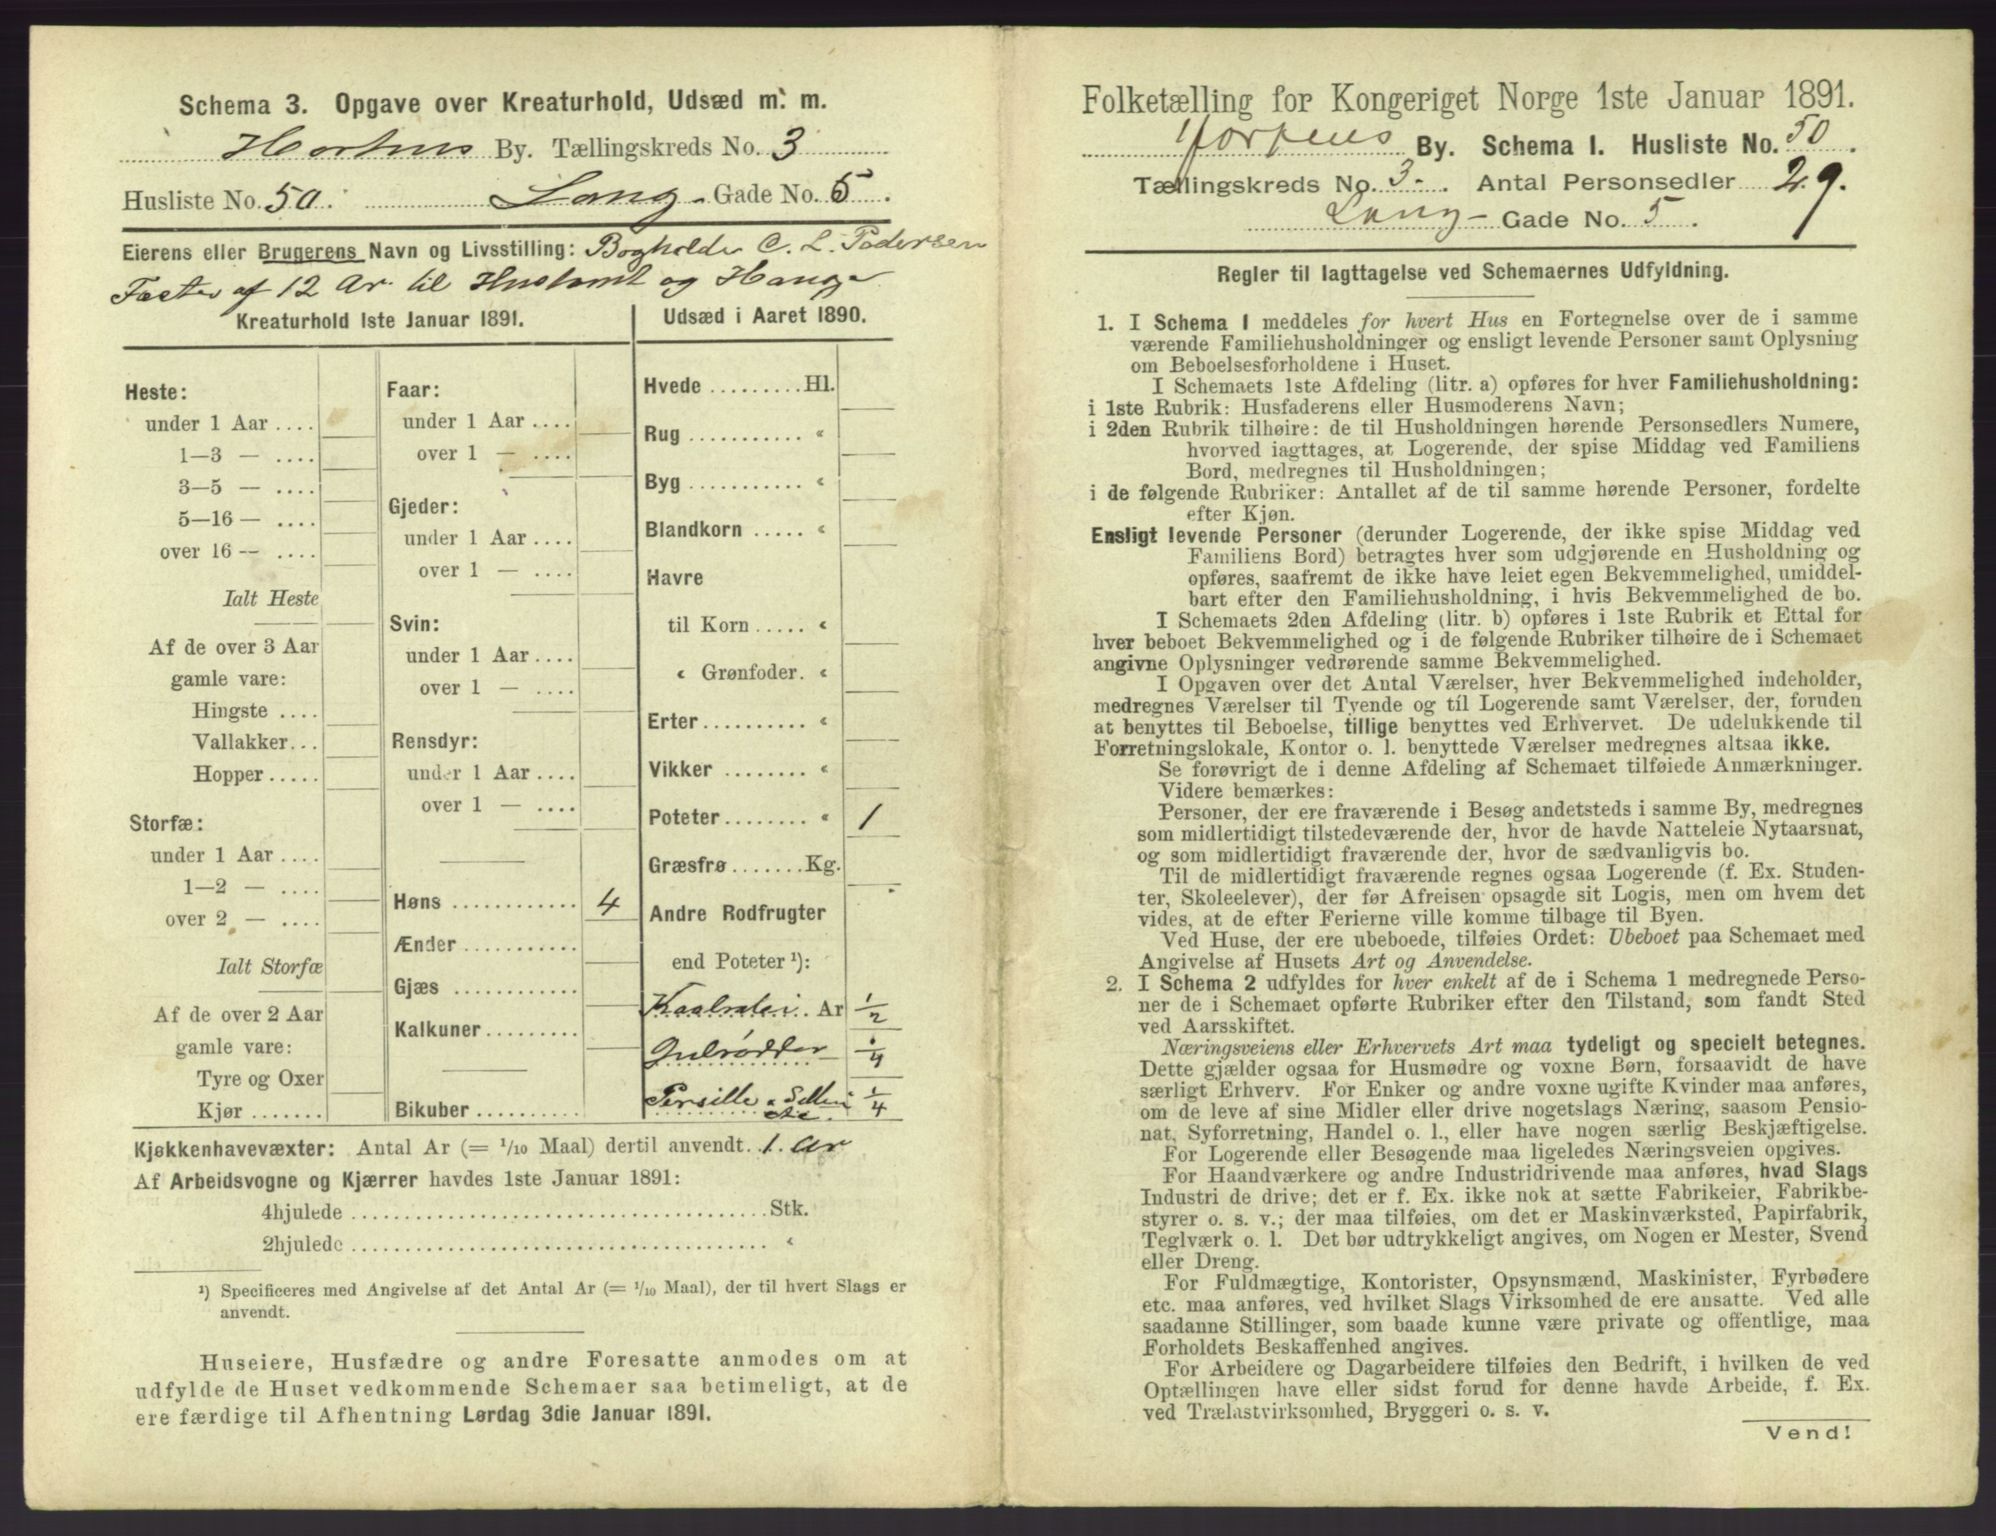 Schema 3. Opgave over Kreaturhold, Udsæd m. m.
Hortens By. Tællingskreds No. 3
Husliste No. 50. Lang- Gade No. 5.
Eierens eller Brugerens Navn og Livsstilling: Bogholder C. L. Pedersen
Fester af 12 Ar til Hustomt og Hauge
Kreaturhold 1ste Januar 1891.
Heste:
under 1 Aar ....
1—3 — ....
3—5 — ....
5—16 — ....
over 16 — ....
Ialt Heste
Af de over 3 Aar
gamle vare:
Hingste ....
Vallakker...
Hopper.....
Storfæ:
under 1 Aar ....
1—2 — ....
over 2 — ....
Ialt Storfæ
Af de over 2 Aar
gamle vare:
Tyre og Oxer
Kjør .......
Faar:
under 1 Aar ....
over 1 — ....
Gjeder:
under 1 Aar ....
over 1 — ....
Svin:
under 1 Aar....
over 1 — ....
Rensdyr:
under 1 Aar ....
over 1 — ....
Høns ............ 4
Ænder ...........
Gjæs ............
Kalkuner.........
Bikuber ..........
Udsæd i Aaret 1890.
Hvede .........Hl.
Rug ........... «
Byg ........... «
Blandkorn ..... «
Havre
til Korn ..... «
« Grønfoder. «
Erter.......... «
Vikker ........ «
Poteter........ « 1
Græsfrø.......Kg.
Andre Rodfrugter
end Poteter ¹):
Kaalrabi.. Ar 1/2
Gulrødder 1/4
Persille & Selleri 1/4
Kjøkkenhavevæxter: Antal Ar (= 1/10 Maal) dertil anvendt. 1. Ar
Af Arbeidsvogne og Kjærrer havdes 1ste Januar 1891:
4hjulede ......................................Stk.
2hjulede ...................................... «
¹) Specificeres med Angivelse af det Antal Ar (= 1/10 Maal), der til hvert Slags er
anvendt.
Huseiere, Husfædre og andre Foresatte anmodes om at
udfylde de Huset vedkommende Schemaer saa betimeligt, at de
ere færdige til Afhentning Lørdag 3die Januar 1891.
Folketælling for Kongeriget Norge 1ste Januar 1891.
Hortens By. Schema I. Husliste No. 50.
Tællingskreds No. 3. Antal Personsedler 29.
Lang- Gade No. 5.
Regler til Iagttagelse ved Schemaernes Udfyldning.
1. I Schema 1 meddeles for hvert Hus en Fortegnelse over de i samme
værende Familiehusholdninger og ensligt levende Personer samt Oplysning
om Beboelsesforholdene i Huset.
I Schemaets 1ste Afdeling (litr. a) opføres for hver Familiehusholdning:
i 1ste Rubrik: Husfaderens eller Husmoderens Navn;
i 2den Rubrik tilhøire: de til Husholdningen hørende Personsedlers Numere,
hvorved iagttages, at Logerende, der spise Middag ved Familiens
Bord, medregnes til Husholdningen;
i de følgende Rubriker: Antallet af de til samme hørende Personer, fordelte
efter Kjøn.
Ensligt levende Personer (derunder Logerende, der ikke spise Middag ved
Familiens Bord) betragtes hver som udgjørende en Husholdning og
opføres, saafremt de ikke have leiet egen Bekvemmelighed, umiddel-
bart efter den Familiehusholdning, i hvis Bekvemmelighed de bo.
I Schemaets 2den Afdeling (litr. b) opføres i 1ste Rubrik et Ettal for
hver beboet Bekvemmelighed og i de følgende Rubriker tilhøire de i Schemaet
angivne Oplysninger vedrørende samme Bekvemmelighed.
I Opgaven over det Antal Værelser, hver Bekvemmelighed indeholder,
medregnes Værelser til Tyende og til Logerende samt Værelser, der, foruden
at benyttes til Beboelse, tillige benyttes ved Erhvervet. De udelukkende til
Forretningslokale, Kontor o. l. benyttede Værelser medregnes altsaa ikke.
Se forøvrigt de i denne Afdeling af Schemaet tilføiede Anmærkninger.
Videre bemærkes:
Personer, der ere fraværende i Besøg andetsteds i samme By, medregnes
som midlertidigt tilstedeværende der, hvor de havde Natteleie Nytaarsnat,
og som midlertidigt fraværende der, hvor de sædvanligvis bo.
Til de midlertidigt fraværende regnes ogsaa Logerende (f. Ex. Studen-
ter, Skoleelever), der før Afreisen opsagde sit Logis, men om hvem det
vides, at de efter Ferierne ville komme tilbage til Byen.
Ved Huse, der ere ubeboede, tilføies Ordet: Ubeboet paa Schemaet med
Angivelse af Husets Art og Anvendelse.
2. I Schema 2 udfyldes for hver enkelt af de i Schema 1 medregnede Perso-
ner de i Schemaet opførte Rubriker efter den Tilstand, som fandt Sted
ved Aarsskiftet.
Næringsveiens eller Erhvervets Art maa tydeligt og specielt betegnes.
Dette gjælder ogsaa for Husmødre og voxne Børn, forsaavidt de have
særligt Erhverv. For Enker og andre voxne ugifte Kvinder maa anføres,
om de leve af sine Midler eller drive nogetslags Næring, saasom Pensio-
nat, Syforretning, Handel o. l., eller have nogen særlig Beskjæftigelse.
For Logerende eller Besøgende maa ligeledes Næringsveien opgives.
For Haandværkere og andre Industridrivende maa anføres, hvad Slags
Industri de drive; det er f. Ex. ikke nok at sætte Fabrikeier, Fabrikbe-
styrer o. s. v.; der maa tilføies, om det er Maskinværksted, Papirfabrik,
Teglværk o. l. Det bør udtrykkeligt angives, om Nogen er Mester, Svend
eller Dreng.
For Fuldmægtige, Kontorister, Opsynsmænd, Maskinister, Fyrbødere
etc. maa anføres, ved hvilket Slags Virksomhed de ere ansatte. Ved alle
saadanne Stillinger, som baade kunne være private og offentlige, maa
Forholdets Beskaffenhed angives.
For Arbeidere og Dagarbeidere tilføies den Bedrift, i hvilken de ved
Optællingen have eller sidst forud for denne havde Arbeide, f. Ex.
ved Trælastvirksomhed, Bryggeri o. s. v.
Vend!